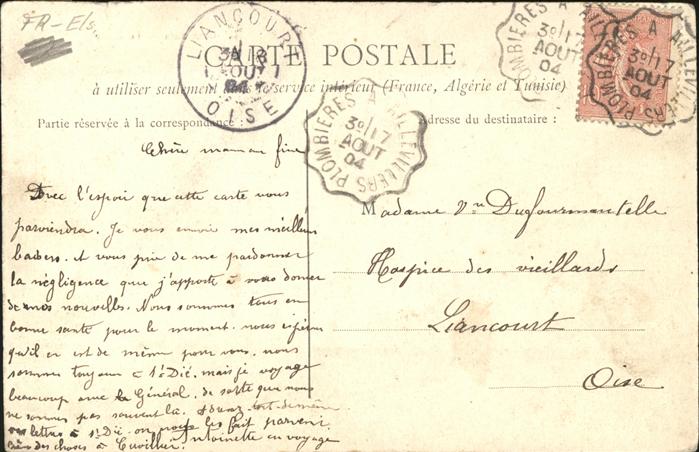 FR-E/s
CARTE POSTALE
à utiliser seulement dans le service intérieur (France, Algérie et Tunisie)
Partie réservée à la correspondance
Adresse du destinataire :
LIANCOURT
OISE
PLOMBIERES A AILLEVILLERS
30/17
AOUT
04
PLOMBIERES A AILLEVILLERS
30/17
AOUT
04
PLOMBIERES A AILLEVILLERS
30/17
AOUT
04
Chère maman fine
Avec l'espoir que cette carte vous
parviendra. Je vous envoie mes meilleurs
baisers. et vous prie de me pardonner
la négligence que j'apporte à vous donner
de nos nouvelles. Nous sommes tous en
bonne santé pour le moment. nous espérons
qu'il en est de même pour vous. nous
sommes toujours à St Dié. mais je voyage
beaucoup avec le Général. de sorte que nous
ne sommes pas souvent là. tout de même
vos lettres à St Dié. on nous les fait parvenir
des choses à Cuvillier Antoinette en voyage
Madame Vve Dufourmantelle
Hospice des vieillards
Liancourt
Oise